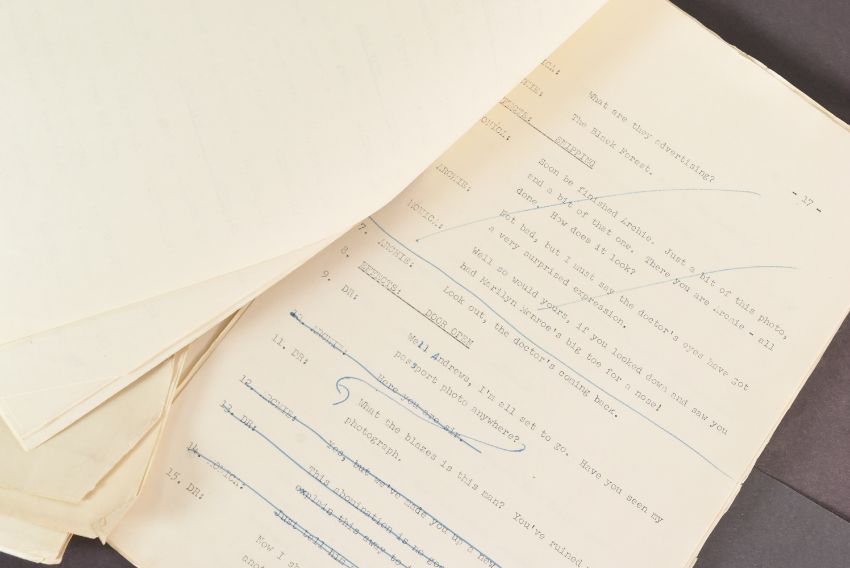 What are they advertising?
The Black Forest.
SNIPPING
- 17 -
Soon be finished Archie. Just a bit of this photo,
and a bit of that one. There you are Archie - all
done. How does it look?
ARCHIE: Not bad, but I must say the doctor's eyes have got
a very surprised expression.
MONICA: Well so would yours, if you looked down and saw you
had Marilyn Monroe's big toe for a nose!
7. ARCHIE: Look out, the doctor's coming back.
8. EFFECTS: DOOR OPEN
9. DR: Well Andrews, I'm all set to go. Have you seen my
passport photo anywhere?
10. ARCHIE: Here you are sir.
11. DR: What the blazes is this man? You've ruined
photograph.
12. ARCHIE: Yes, but we've made you up a new
13. DR: This abomination is no
explain this away to
14. Just tell him
15. DR: Now I